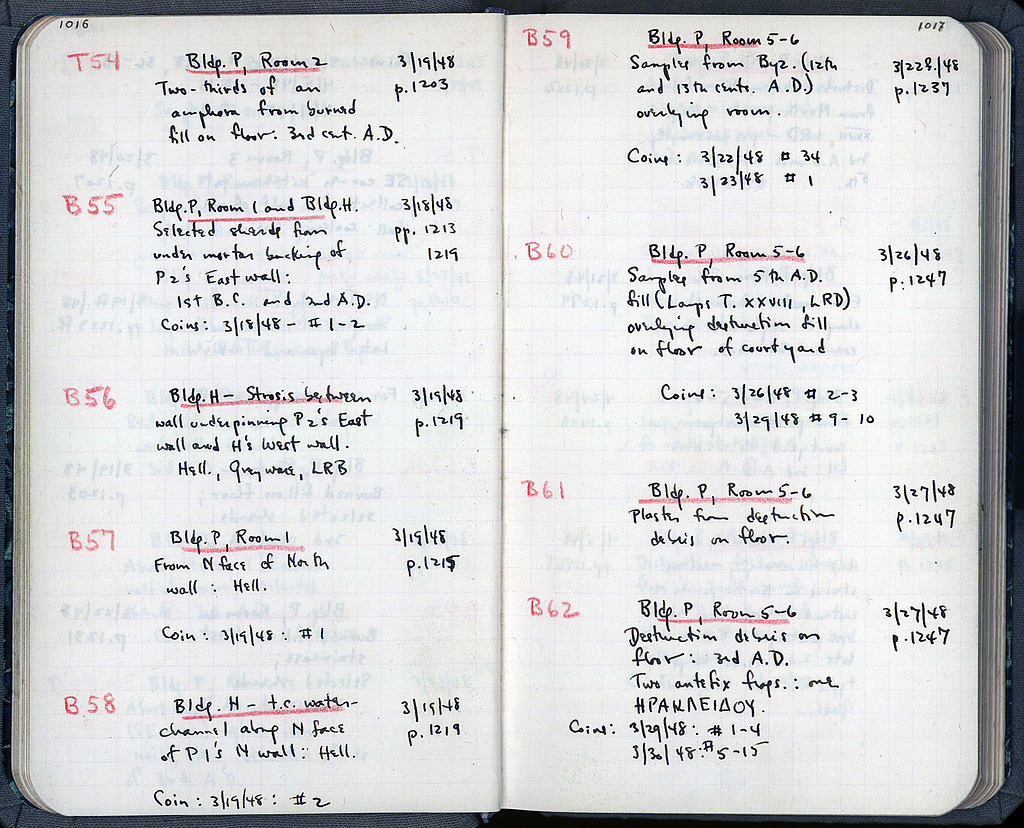 1016
T54 Bldg. P, Room 2 3/19/48
Two-thirds of an p. 1203
amphora from burned
fill on floor. 3rd cent. A.D.
B55 Bldg. P, Room 1 and Bldg. H. 3/18/48
Selected sherds from pp. 1213
under mortar backing of 1219
P2's East wall:
1st B.C. and 2nd A.D.
Coins: 3/18/48 - #1-2
B56 Bldg. H - Strosis between 3/19/48
wall underpinning P2's East p. 1219
wall and H's West wall.
Hell., Greyware, LRB
B57 Bldg. P, Room 1 3/19/48
From N face of North p. 1215
wall: Hell.
Coin: 3/19/48: #1
B58 Bldg. H - t.c. water- 3/19/48
channel along N face p. 1219
of P1's N wall: Hell.
Coin: 3/19/48: #2
1017
B59 Bldg. P, Room 5-6
Samples from Byz. (12th 3/22ff./48
and 13th cents. A.D.) p. 1237
overlying room.
Coins: 3/22/48 #34
3/23/48 #1
B60 Bldg. P, Room 5-6 3/26/48
Samples from 5th A.D. p. 1247
fill (Lamps T. XXVIII, LRD)
overlying destruction fill
on floor of courtyard
Coins: 3/26/48 #2-3
3/29/48 #9-10
B61 Bldg. P, Room 5-6 3/27/48
Plaster from destruction p. 1247
debris on floor.
B62 Bldg. P, Room 5-6 3/27/48
Destruction debris on p. 1247
floor: 3rd A.D.
Two antefix frags.: one
ΗΡΑΚΛΕΙΔΟΥ.
Coins: 3/29/48: #1-4
3/30/48: #5-15